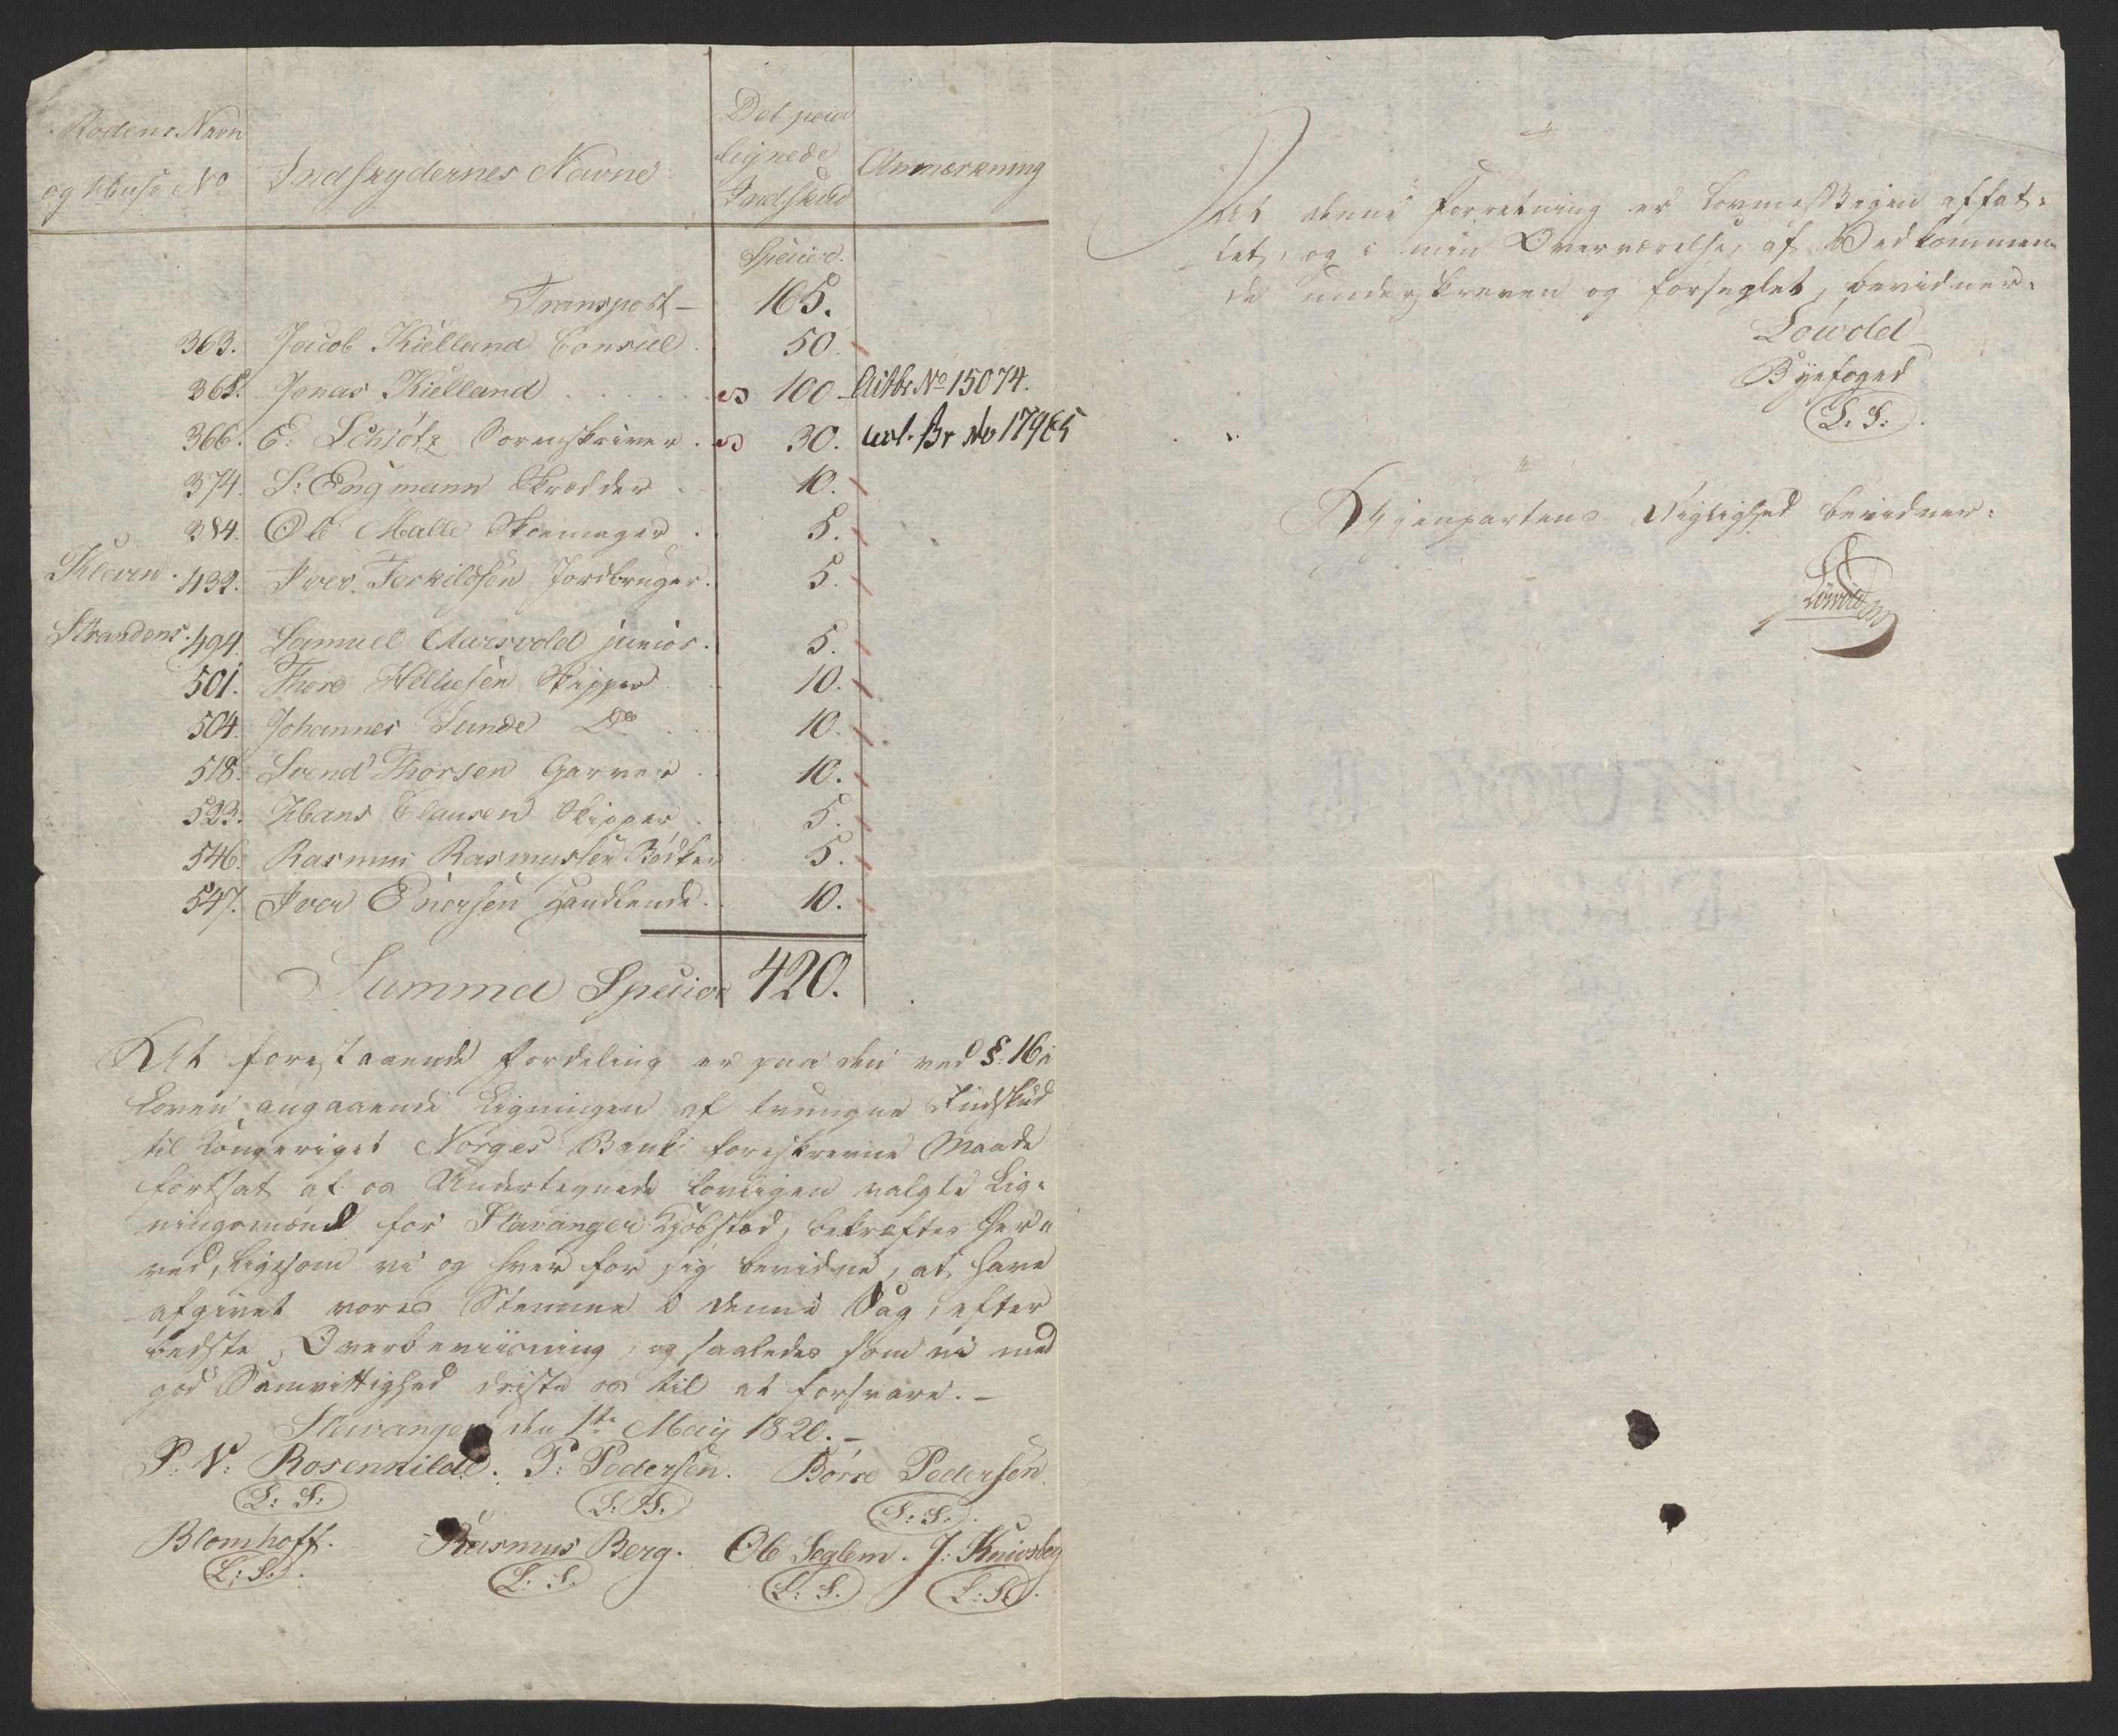 Rodens Navn
og Huse No
Indskydernes Navne
Det paa
lignede
Indskud
Anmærkning
Specier.
Transport – 165.
363. Jacob Kielland Consul 50.
365. Jonas Kielland 100 No 15074.
366. E. Schiötz Sorenskriver 30. Br No 17965
374. S: Engmann Skrædder 10.
384. Ole Malle Skomager 5.
Kleven. 432. Iver Terkildsen Jordbruger. 5.
Strandens. 494. Samuel Aarsvold junior. 5.
501. Thore Helliesen Skipper 10.
504. Johannes Sunde Do 10.
518. Svend Thorsen Garver 10.
523. Hans Clausen Skipper 5.
546. Rasmus Rasmussen Bødker 5.
547. Iver Enersen Handlende. 10.
Summa Specier 420.
At forestaaende Fordeling er paa den ved §. 16 i
Loven angaaende Ligningen af tvungne Indskud
til Kongeriget Norges Bank foreskrevne Maade
fortsat af os Undertegnede lovligen valgte Lig-
ningsmænd for Stavanger Kjøbstæd, bekræftes her-
ved, ligesom vi og hver for sig bevidne, at have
afgivet vores Stemme i denne Sag, efter
bedste Overbeviisning, og saaledes som vi med
god Samvittighed driste os til at forsvare. –
Stavanger den 1te May 1820. –
P. V. Rosenkilde. P: Pedersen. Børre Pedersen
L: S: L: S. L: S:
Blomhoff. Rasmus Berg. Ole Seglem. J: Knivsberg
L: S: L: S. L: S. L: S.
At denne Forretning er lovmæssigen affat-
tet, og i min Overværelse, af Vedkommen-
de underskreven og forseglet, bevidner.
Løwold
Byefoged
L. S:
Gjenpartens Rigtighed bevidner.
Løwold